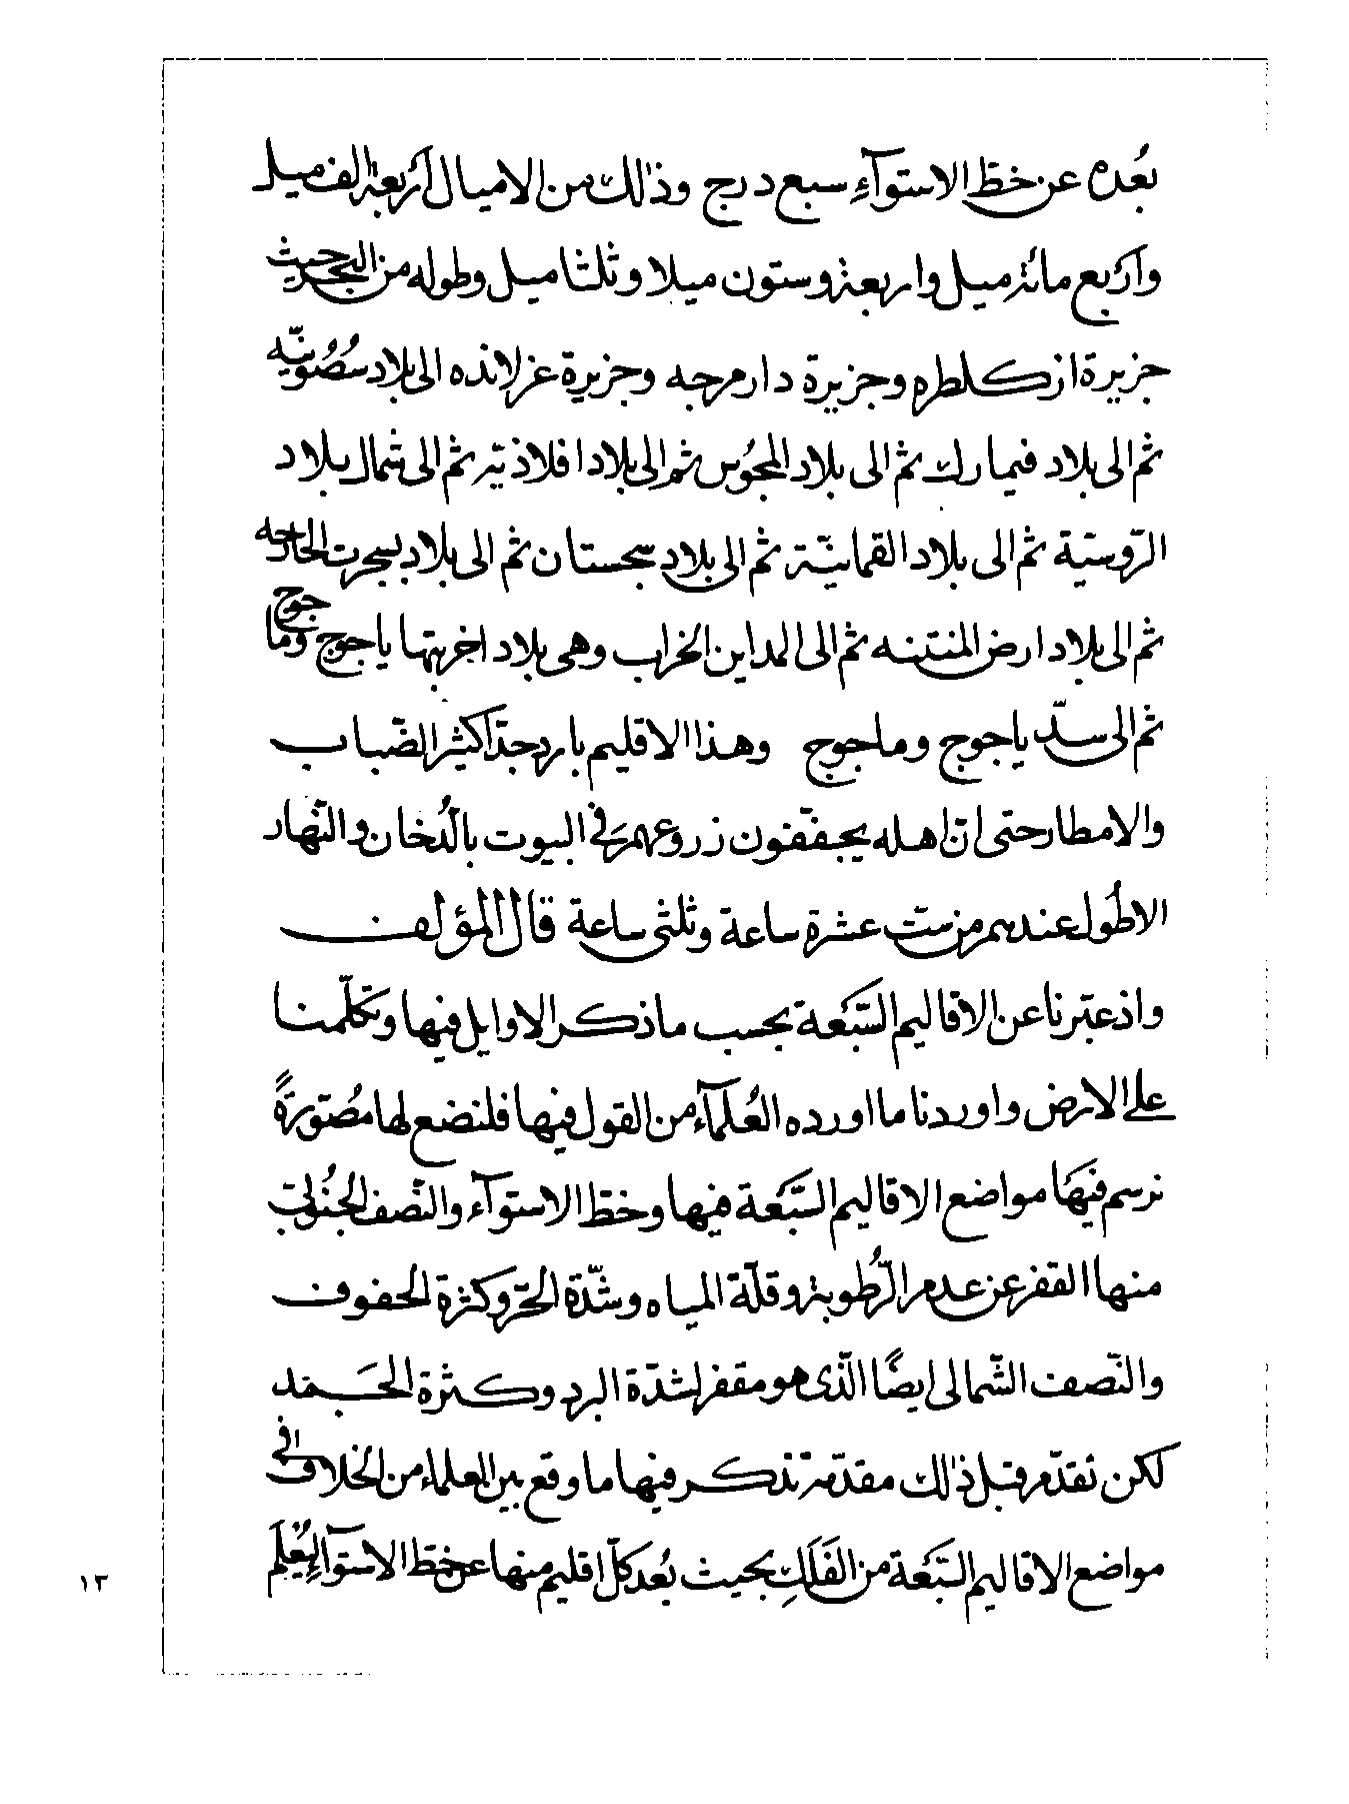 بُعده عن خطّ الاستوآءِ سبع درج وذالك من الاميال اربعة الف ميل
واربع مائة ميل واربعة وستون ميلا وثلثا ميل وطوله من البحر حيث
جزيرة ازكلطره وجزيرة دارمرجه وجزيرة عزلانده الى بلاد سُصُونيّه
ثم الى بلاد فيمارك ثم الى بلاد المجُوس ثم الى بلاد افلاذيّه ثم الى شمال بلاد
الرّوسيّة ثم الى بلاد القمانيّة ثم الى بلاد سجستان ثم الى بلاد بسجرت الخارجه
ثم الى بلاد ارض المنتنه ثم الى المداين الخراب وهى بلاد اخربتها ياجوج وماجوج
ثم الى سدّ ياجوج وماجوج وهذا الاقليم بارد جدّا كثير الضّباب
والامطار حتى انّ اهله يجفّفون زروعهم فى البيوت بالدُخان والنّهار
الاطُول عندهم من ستّ عشرة ساعة وثلثى ساعة قال المؤلف
واذ عبّرنا عن الاقاليم السّبعة بحسب ما ذكر الاوايل فيها وتكلّمنا
على الارض واوردنا ما اورده العُلمآء من القول فيها فلنضع لها مصُوّرةً
نرسم فيها مواضع الاقاليم السّبعة فيها وخطّ الاستوآء والنّصف الجنُوبى
منها القفر عن عدم الرّطُوبة وقلّة المياه وشدّة الحرّ وكثرة الحفوف
والنّصف الشّمالى ايضًا الّذى هو مقفر لشدّة البرد وكثرة الجمد
لكن نقدّم قبل ذالك مقدّمة نذكر فيها ما وقع بين العلماء من الخلاف فى
مواضع الاقاليم السّبعة من الفَلَكِ بحيث بُعد كلّ اقليم منها عن خطّ الاستوآء ليُعْلَم
١٣